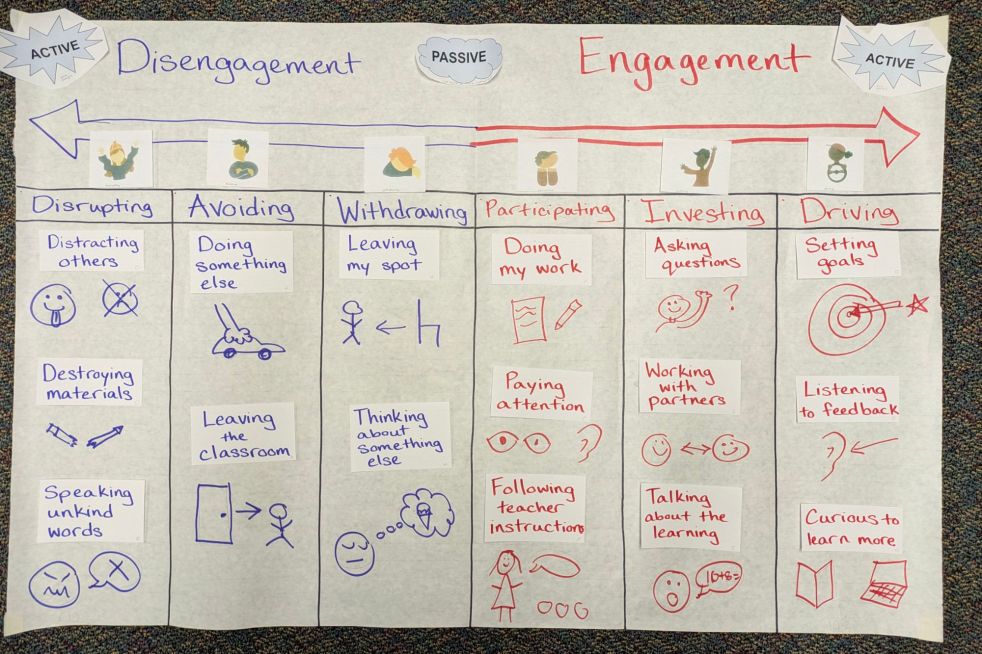 ACTIVE
Disengagement
PASSIVE
Engagement
ACTIVE
Disrupting
Avoiding
Withdrawing
Participating
Investing
Driving
Distracting
others
Destroying
materials
Speaking
unkind
words
Doing
something
else
Leaving
the
classroom
Leaving
my spot
Thinking
about
something
else
Doing
my work
Paying
attention
Following
teacher
instructions
Asking
questions
?
Working
with
partners
Talking
about the
learning
16+8=
Setting
goals
Listening
to feedback
Curious to
learn more